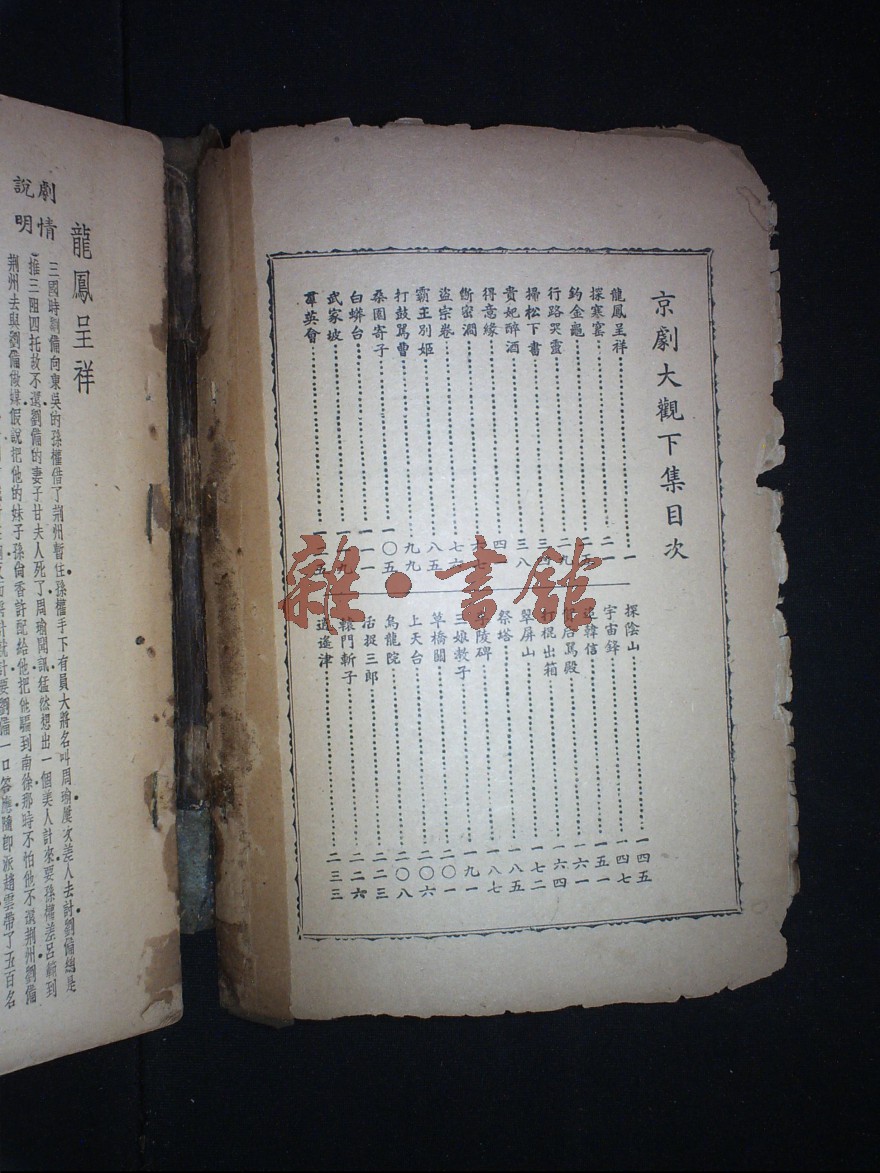 京劇大觀下集目次
龍鳳呈祥 一
探寒窰 二一
釣金龜 二五
行路哭靈 二九
掃松下書 三四
貴妃醉酒 三八
得意緣 四一
斷密澗 六七
盜宗卷 七六
霸王別姬 八五
打鼓罵曹 九九
桑園寄子 一〇五
白蟒台 一一一
武家坡 一一九
羣英會 一二五
探陰山 一四五
宇宙鋒 一四七
追韓信 一五一
罵殿 一六一
打棍出箱 一六四
翠屏山 一七二
祭塔 一八五
陵碑 一八七
三娘教子 一九一
草橋關 二〇一
上天台 二〇六
烏龍院 二〇八
活捉三郎 二二三
轅門斬子 二二六
逍遙津 二三三
雜·書館
龍鳳呈祥
劇情
說明
三國時劉備向東吳的孫權借了荆州暫住孫權手下有員大將名叫周瑜屢次差人去討劉備總是
推三阻四托故不還劉備的妻子甘夫人死了周瑜聞訊猛然想出一個美人計來要孫權差呂範到
荆州去與劉備做媒假說把他的妹子孫尙香許配給他把他騙到南徐那時不怕他不還荆州劉備
計要劉備一口答應隨卽派趙雲帶了五百名